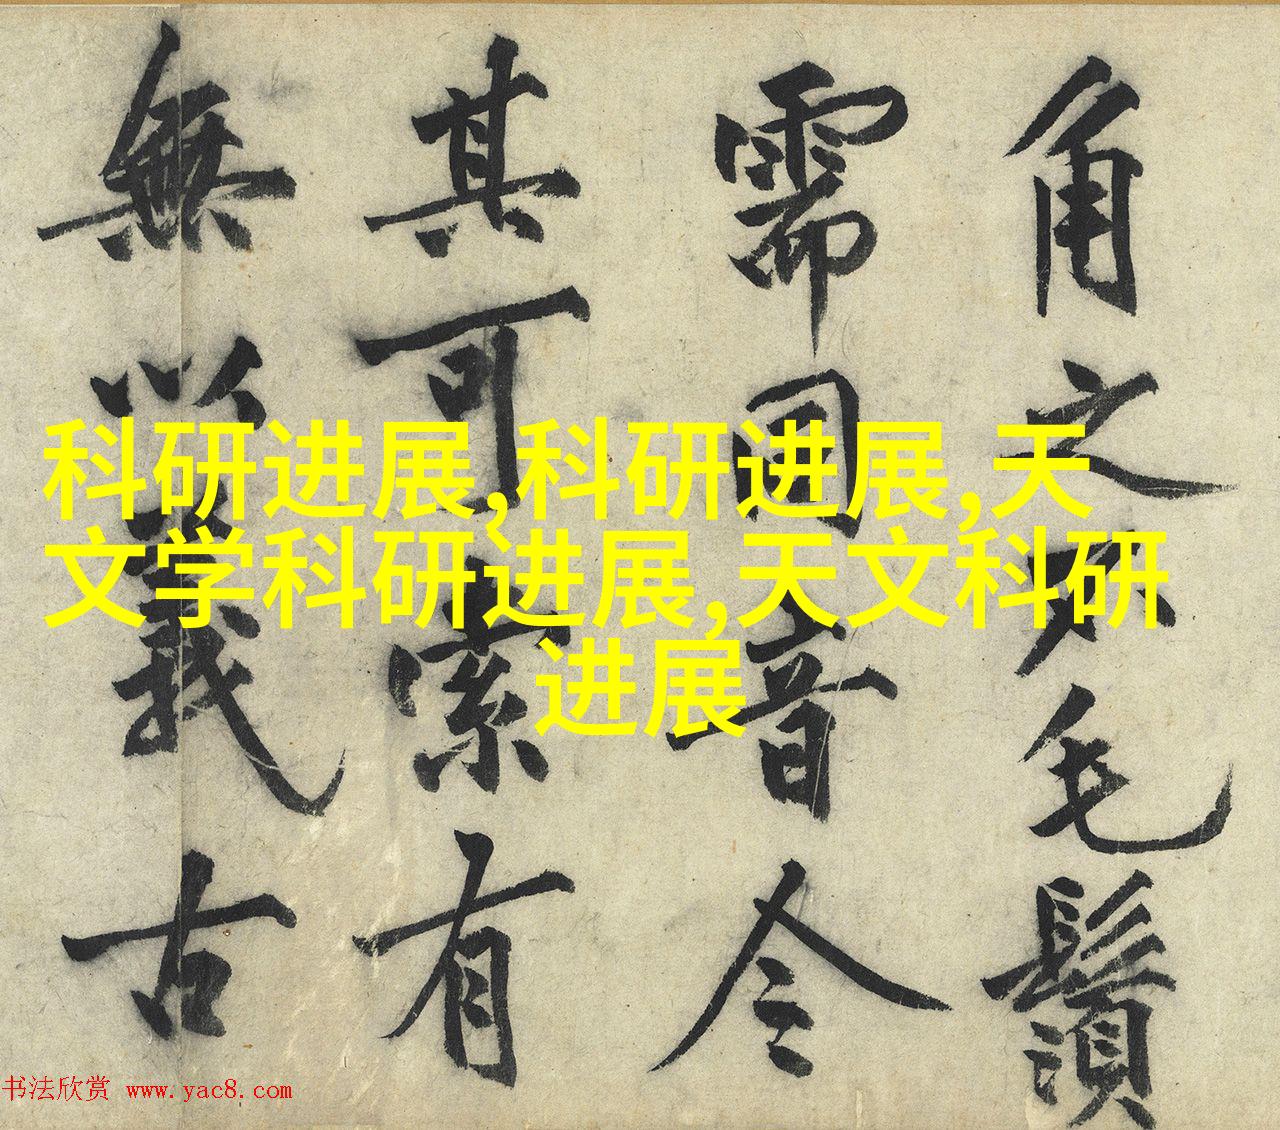 角之不毛鬚
需音令
其可索有
無以義古
科研进展,科研进展,天
文学科研进展,天文科研
进展
书法欣赏 www.yac8.com